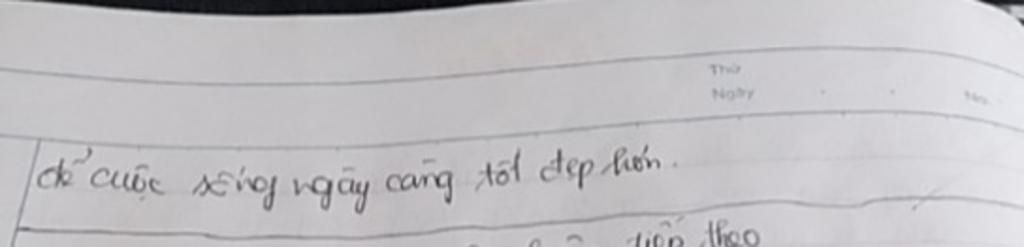 Thứ
Ngày No.
để cuộc sống ngày càng tốt đẹp hơn.
tiếp theo